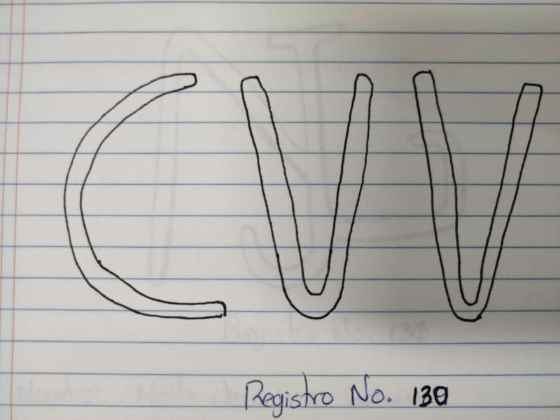 CVV
Registro No. 130